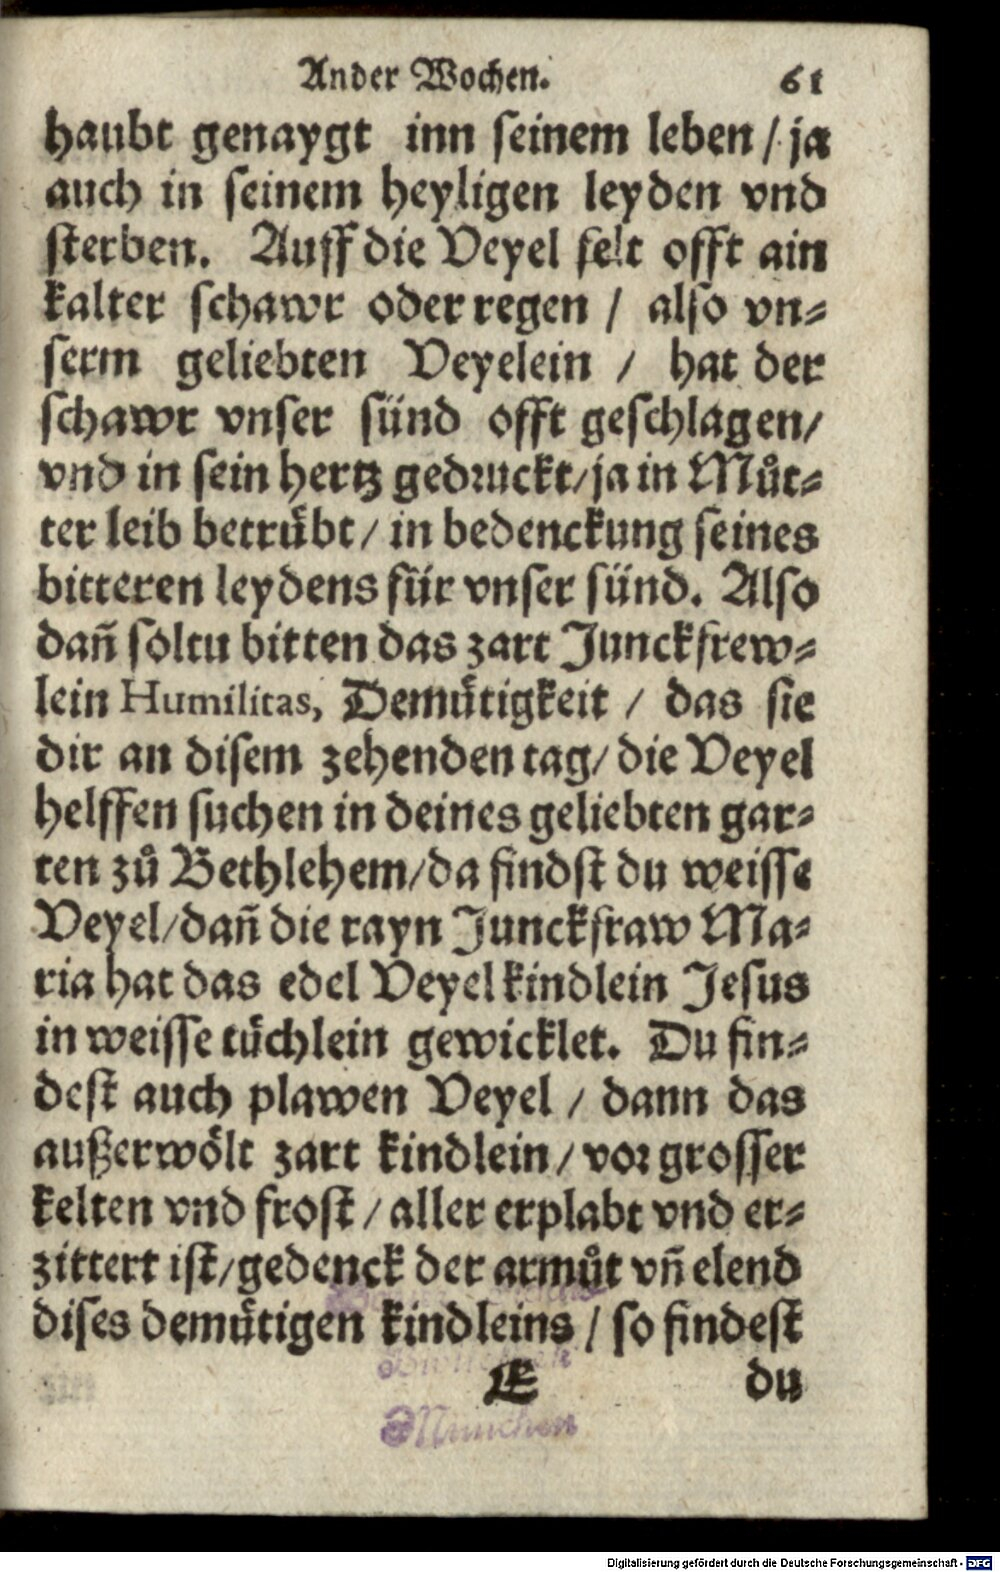 Ander Wochen. 61
haubt genaygt inn seinem leben / ja
auch in seinem heyligen leyden vnd
sterben. Auff die Veyel felt offt ain
kalter schawr oder regen / also vn=
serm geliebten Veyelein / hat der
schawr vnser sünd offt geschlagen/
vnd in sein hertz gedruckt/ ja in Můt=
ter leib betrůbt / in bedenckung seines
bitteren leydens für vnser sünd. Also
dañ soltu bitten das zart Junckfrew=
lein Humilitas, Demůtigkeit / das sie
dir an disem zehenden tag/ die Veyel
helffen suchen in deines geliebten gar=
ten zů Bethlehem/da findst du weisse
Veyel/dañ die rayn Junckfraw Ma=
ria hat das edel Veyel kindlein Jesus
in weisse tůchlein gewicklet. Du fin=
dest auch plawen Veyel / dann das
außerwölt zart kindlein / vor grosser
kelten vnd frost / aller erplabt vnd er=
zittert ist/gedenck der armůt vñ elend
dises demůtigen kindleins / so findest
E du
München
Digitalisierung gefördert durch die Deutsche Forschungsgemeinschaft - DFG